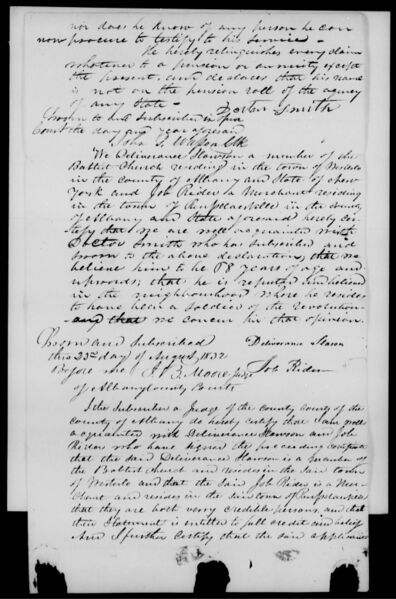 nor does he know of any person he can
now procure to testify to his service -
He hereby relinquishes every claim
whatever to a pension or annuity except
the present, and declares that his name
is not on the pension roll of the agency
of any State -
Doctor Smith
Sworn to and subscribed in open
Court the day and year aforesaid
We Deliverance Slawson a member of the
Babtist Church residing in the town of Westerlo
in the county of Albany and State of New
York and Job Rider a Merchant residing
in the town of Rensselaerville in the county
of Albany and State aforesaid hereby cer-
tify that we are well acquainted with
Doctor Smith who has subscribed and
sworn to the above declaration, that we
believe him to be 68 years of age and
upwards; that he is reputed and believed
in the neighbourhood where he resides
to have been a soldier of the revolution
and that we concur in that opinion.
Sworn and Subscribed
this 23rd day of August 1832
Deliverance Slason
Before me J. B. Moore Judge
Job Rider
of Albany County Courts
I the Subscriber a Judge of the County Courts of the
County of Albany do hereby certify that I am well
acquainted with Deliverance Slawson and Job
Rider who have signed the preceeding certificate
that the said Deliverance Slawson is a member of
the Babtist Church and resides in the said town
of Westerlo and that the said Job Rider is a Mer-
chant and resides in the said town of Rensselaerville
that they are both very credible persons, and that
their Statement is entitled to full credit and belief
And I further Certify that the said applicant